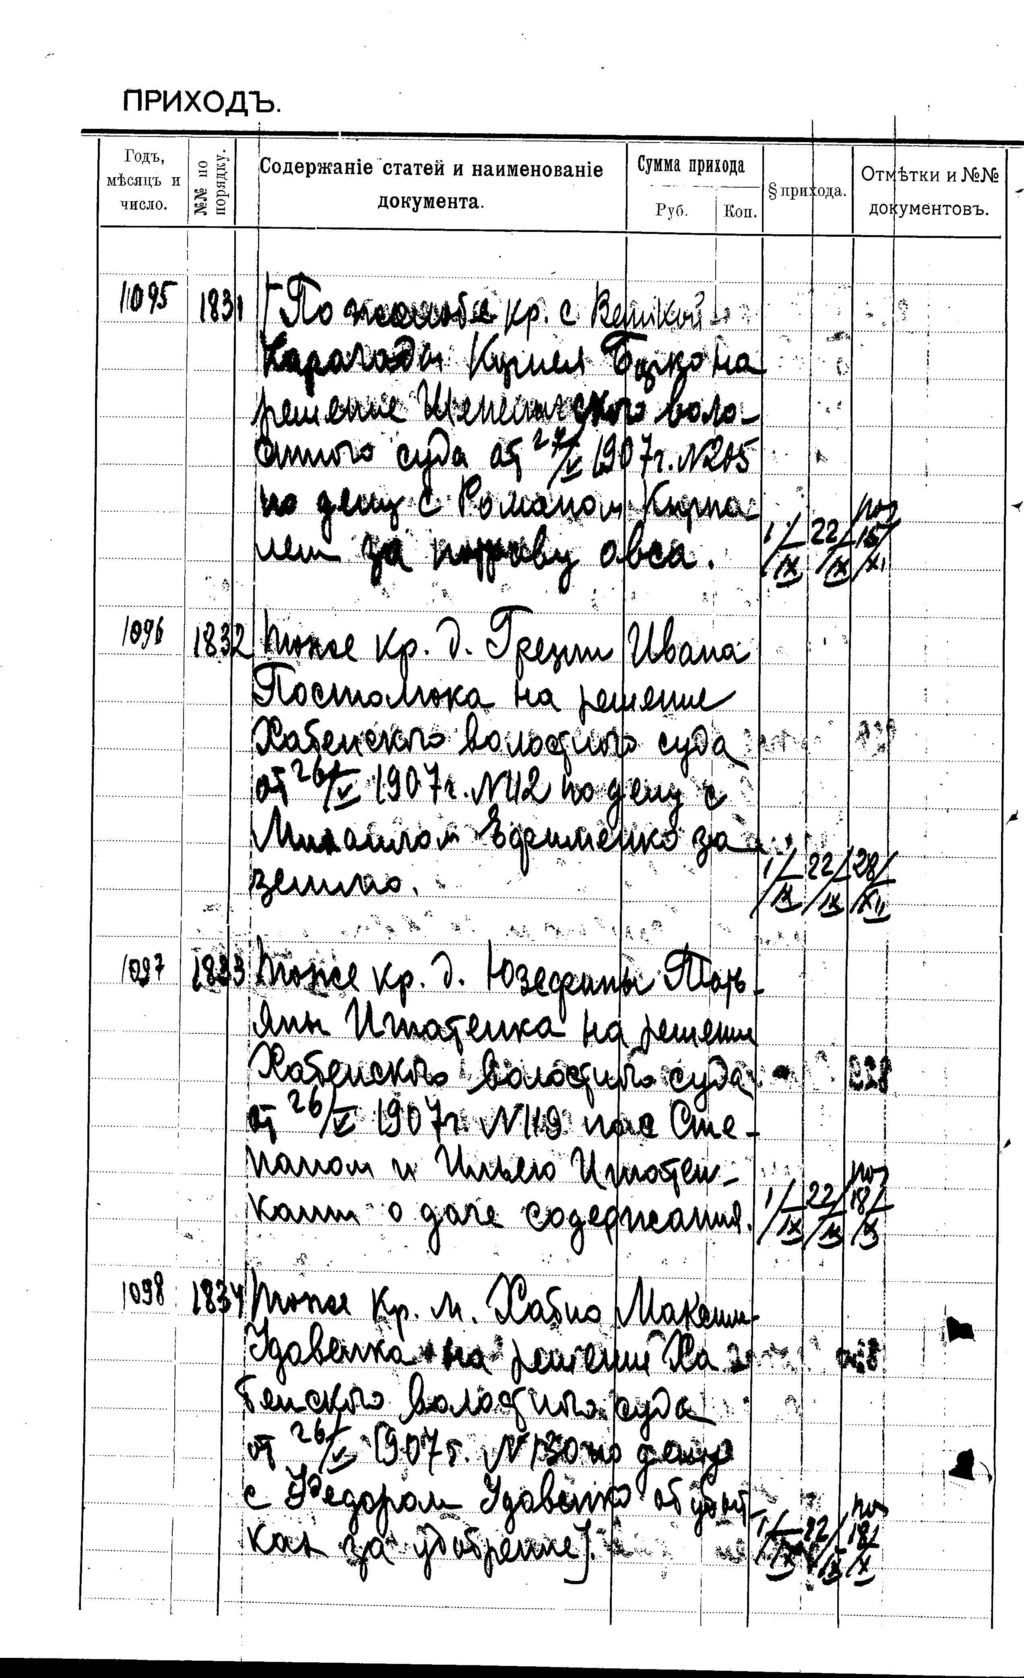 ПРИХОДЪ.
Годъ, мѣсяцъ и число.
№№ по порядку.
Содержаніе статей и наименованіе документа.
Сумма прихода
Руб. Коп.
§ прихода.
Отмѣтки и №№ документовъ.
1095 1831 По жалобѣ кр. с Великой
Карагоды Кирпел на
решение Шепеличского воло-
стного суда от 27/V 1907 г. № 205
по делу с Романом Кирпа-
лем за потраву овса. 1/IX 22/IX 15/XI
1096 1832 тоже кр. д. Грезли Ивана
Постолюка на решение
Хабенского волостного суда
от 26/V 1907 г. № 112 по делу с
Михаилом Ефименко за
землю. 1/IX 22/IX 28/XII
1097 1833 тоже кр. д. Юзефины Тать-
яны Игнатенка на решении
Хабенского волостного суда
от 26/V 1907 г. № 119 с Сте-
паном и Ильею Игнатен-
ками о даче содержания. 1/IX 22/IX 18/X
1098 1834 тоже кр. м. Хабно Максим
Удовенка на решении Ха
бенского волостного суда
от 26/V 1907 г. № 130 по делу
с Федором Удовенко об убыт-
ках за удобрение]. 1/IX 22/IX 18/X